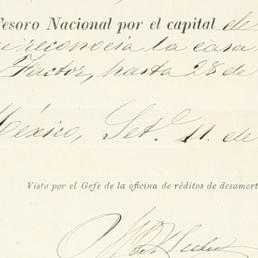 Tesoro Nacional por el capital de
reconocía la casa
Factor, hasta 28 de
México, Set.e 11. de
Visto por el Gefe de la oficina de réditos de desamort